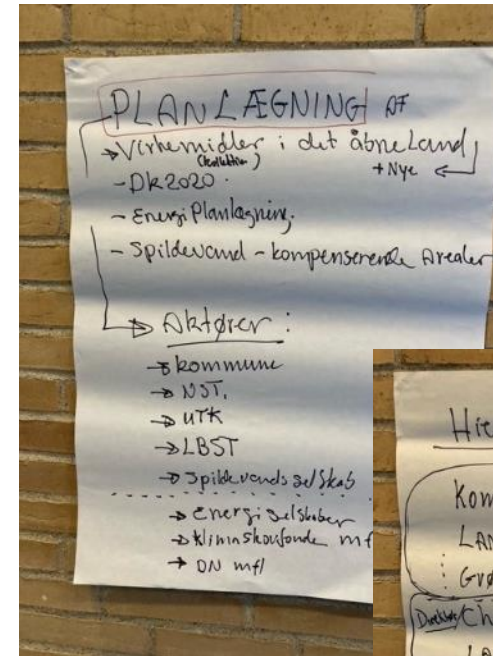 PLANLÆGNING AF
→ Virkemidler i det åbne Land
(kollektive) + Nye ←
- DK2020.
- Energi Planlægning.
- Spildevand - kompenserende Arealer
→ Aktører:
→ kommune
→ NST,
→ UTK
→ LBST
→ Spildevandsselskab
→ Energiselskaber
→ Klimaskovfonde mf
→ DN mfl
Hie
Kom
LAN
Grø
Ch
LA